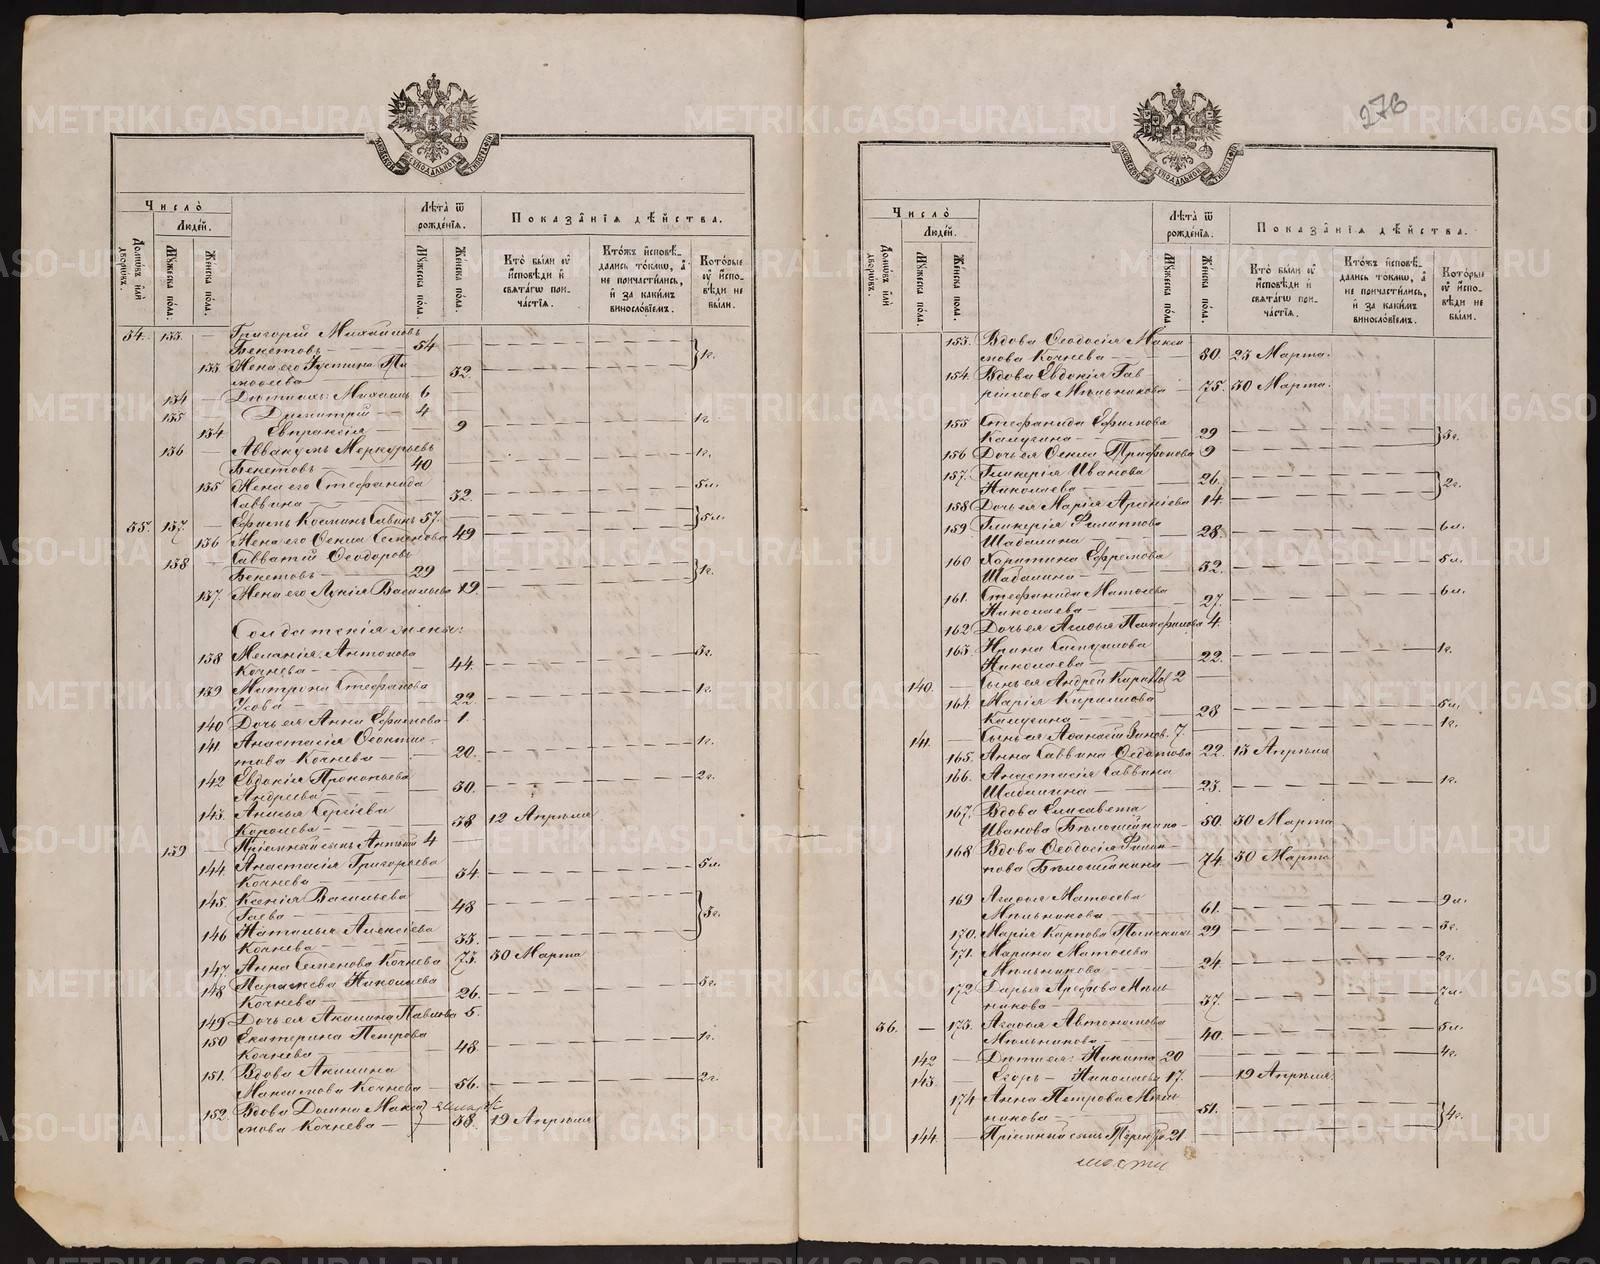 276
МОСКОВСКОЙ СУНОДАЛЬНОЙ ТИПОГРАФІИ
Число̀
Людей.
Домовъ и҆лѝ дворѡвъ.
Мꙋжеска пола.
Женска пола.
Лѣта ѿ рожденїѧ.
Мꙋжеска пола.
Женска пола.
Показанїѧ дѣйства.
Кто̀ были ᲂу҆ и҆сповѣди и҆ свѧтагѡ причастїѧ.
Ктожъ и҆сповѣдались токмѡ, а҆ не причастились, и҆ за какимъ винословїемъ.
Которые ᲂу҆ и҆сповѣди не были.
54. 133. — Григорій Михайловъ
Бекетовъ — 54 1г.
133 Жена его Устина Ти
моѳеева 52.
134 — Дѣти ихъ: Михаилъ 6
135 Димитрій — 4
134 Евпраксія — 9 1г.
136 — Аввакумъ Меркурьевъ
Бекетовъ — 40 1г.
135 Жена его Стефанида
Саввина 32. 5л.
55. 137. — Ефимъ Козминъ Савинъ 57. 5л.
136 Жена его Ѳекла Семенова 49
138 — Савватій Ѳеодоровъ
Бекетовъ — 29 1г.
137. Жена его Лукія Васильева 19
Солдатскія жены:
138 Меланія Антонова
Кочнева — 44. 3г.
139 Матрона Стефанова
Усова — 22. 1г.
140 Дочь ея Анна Ефимова — 1
141. Анастасія Ѳеоктис
това Кочнева — 20. 1г.
142 Евдокія Прокопьева
Андреева — 30. 2г.
143. Анисья Сергіева
Королева — 38 12 Апрѣля
139 Пріемный сынъ Антоній 4
144. Анастасія Григорьева
Кочнева — 34. 5л.
145. Ксенія Васильева
Гаева — 48 3г.
146 Наталья Алексіева
Кочнева — 35.
147. Анна Семенова Кочнева 73. 30 Марта
148 Параскева Николаева
Кочнева — 26. 3г.
149 Дочь ея Акилина Павлова 5.
150 Екатерина Петрова
Кочнева — 48. 1г.
151. Вдова Акилина
Максимова Кочнева — 56. 2г.
152. Вдова Домна Макси
мова Кочнева — 58. 19 Апрѣля
Число̀
Людей.
Домовъ и҆лѝ дворѡвъ.
Мꙋжеска пола.
Женска пола.
Лѣта ѿ рожденїѧ.
Мꙋжеска пола.
Женска пола.
Показанїѧ дѣйства.
Кто̀ были ᲂу҆ и҆сповѣди и҆ свѧтагѡ причастїѧ.
Ктожъ и҆сповѣдались токмѡ, а҆ не причастились, и҆ за какимъ винословїемъ.
Которые ᲂу҆ и҆сповѣди не были.
153. Вдова Ѳеодосія Макси
мова Кочнева — 80 25 Марта.
154. Вдова Евдокія Гав
ріилова Мѣльникова — 75. 30 Марта.
155 Стефанида Ефимова
Калугина — 29 3г.
156 Дочь ея Ѳекла Трифонова 9
157. Гликерія Иванова
Николаева — 26. 2г.
158 Дочь ея Марія Арсеніева 14
159 Гликерія Филиппова
Шабалина — 28. 6л.
160 Харитина Ефремова
Шабалина — 32. 5л.
161. Стефанида Матѳеева
Николаева — 27. 6л.
162 Дочь ея Агаѳья Панфилова 4.
163. Ирина Самуилова
Николаева — 22. 1г.
140. — Сынъ ея Андрей Кирилов 2
164. Марія Кирилова
Калугина — 28 5л.
141. — Сынъ ея Аѳанасій 7. 1г.
165. Анна Саввина Ѳедотова 22. 15 Апрѣля
166. Анастасія Саввина
Шабалина — 23. 1г.
167. Вдова Елисавета
Иванова — 50. 30 Марта
168 Вдова Ѳеодосія Филип
пова — 74. 30 Марта
169 Агаѳья Матѳеева
Мѣльникова — 61. 9л.
170. Марія Карпова 29 3г.
171. Марина Матѳеева
Мѣльникова — 24. 2г.
172 Дарья Ареѳова Мѣль
никова 37. 7л.
56. — 173. Агаѳья Автономова
Мѣльникова — 40. 5л.
142 — Дѣти ея: Никита 20 4г.
143. — Егоръ — Николаевы 17. 19 Апрѣля
174 Анна Петрова Мѣль
никова — 51. 4г.
144. — Пріемный сынъ 21